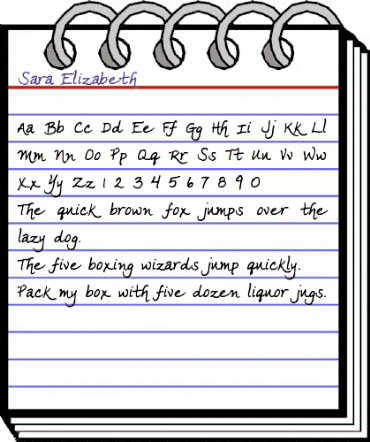 Sara Elizabeth
Aa Bb Cc Dd Ee Ff Gg Hh Ii Jj Kk Ll
Mm Nn Oo Pp Qq Rr Ss Tt Uu Vv Ww
Xx Yy Zz 1 2 3 4 5 6 7 8 9 0
The quick brown fox jumps over the
lazy dog.
The five boxing wizards jump quickly.
Pack my box with five dozen liquor jugs.